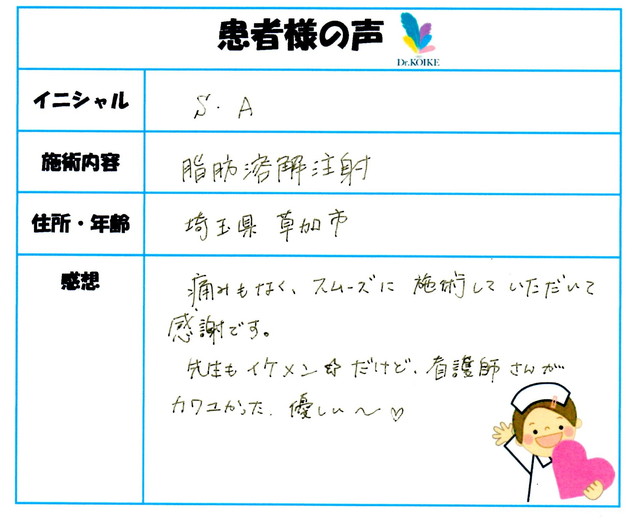 患者様の声
Dr.KOIKE
イニシャル
S.A
施術内容
脂肪溶解注射
住所・年齢
埼玉県 草加市
感想
痛みもなく、スムーズに 施術していただいて
感謝です。
先生もイケメン☆だけど、看護師さんが
カワユかった。優しい〜♡